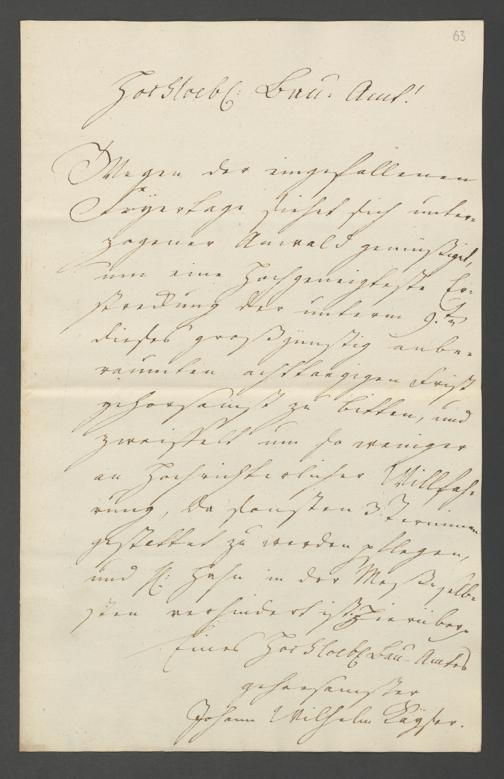 63
Hochloebl: Bau-Amt!
Wegen der eingefallenen
Feyertage siehet sich unter-
zogener Anwald gemüßiget,
um eine Hochgeneigteste Er-
streckung der unterm 9.ten
dieses großgünstig anbe-
raumten achttaegigen Frist
gehorsamst zu bitten, und
zweiffelt um so weniger
an Hochrichterlicher Willfah-
rung, da sonsten 3 Terminen
gestattet zu werden pflegen,
und H: Hahn in der Meß
verhindert ist.
Eines Hochloebl: Bau-Amtes
gehorsamster
Johann Wilhelm Kayser.